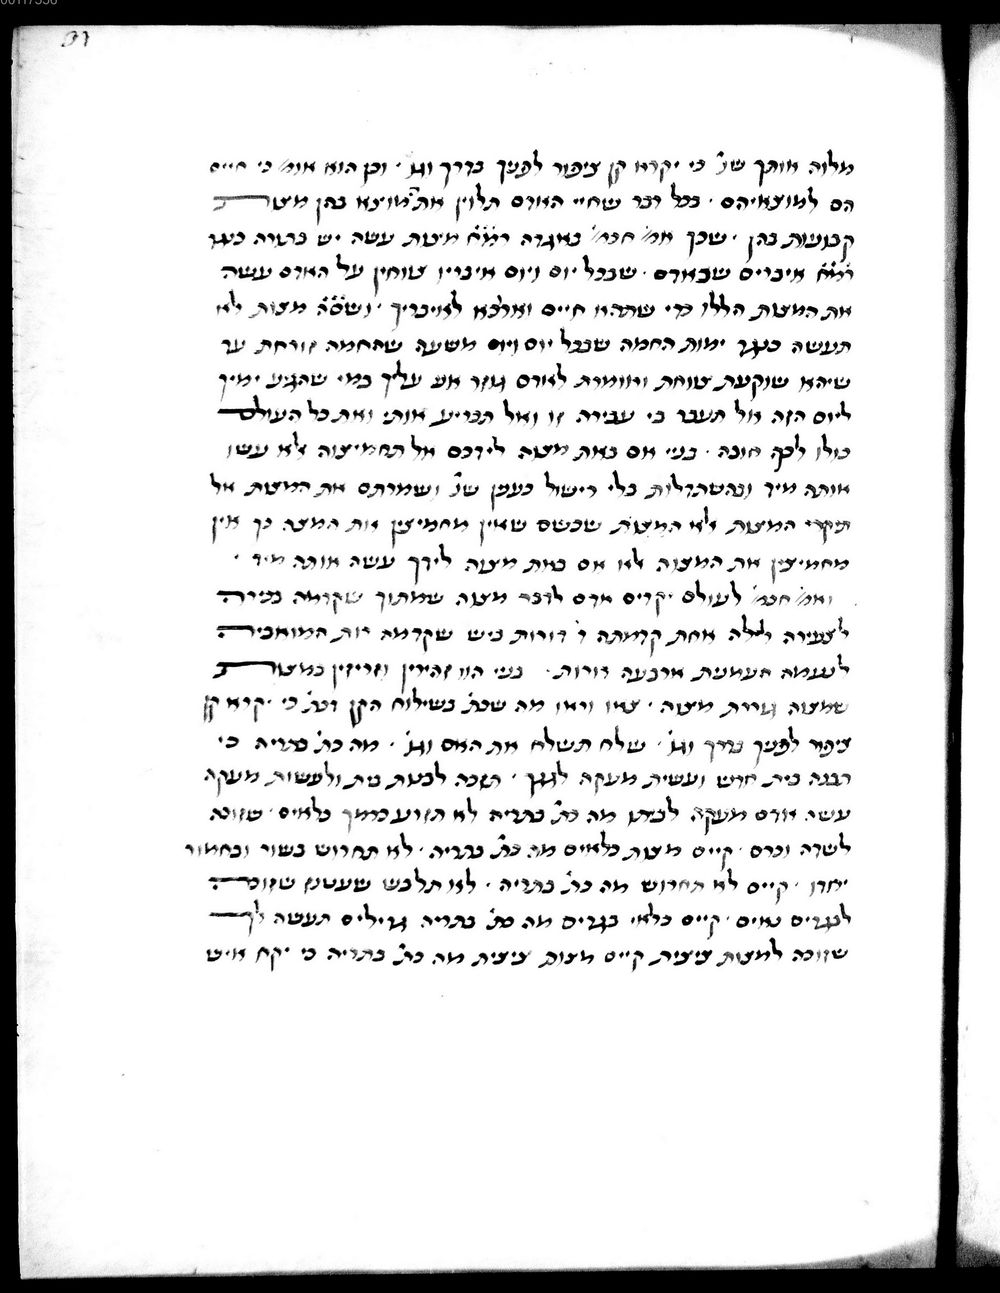 מלוה אותך שנ׳ כי יקרא קן ציפור לפניך בדרך וגו׳ · וכן הוא אומ׳ כי חיים
הם למוצאיהם · בכל דבר שחיי האדם תלוין את מוצא בהן מצות
קבועות בהן · שכך אמ׳ חכמ׳ באגדה רמ״ח מיצות עשה יש בתורה כנגד
רמ״ח איברים שבאדם · שבכל יום ויום איבריו צווחין על האדם עשה
את המצות הללו כדי שתהא חייס ואורכא לאיבריך · ושס״ה מצות לא
תעשה כנגד ימות החמה שבכל יום ויום משעה שהחמה זורחת עד
שיהא שוקעת צווחת ואומרת לאדם גוזר אני עליך במי שהגיע ימיך
ליום הזה אל תעבר בי עבירה זו ואל תכריע אותי ואת כל העולם
כולו לכף חובה · בני אם באת מצוה לידכם אל תחמיצוה אלא עשו
אותה מיד ובהשתדלות בלי רישול כענין שנ׳ ושמרתם את המצות אל
תיקרי המצות אלא המצוות שכשם שאין מחמיצין את המצה כך אין
מחמיצין את המצוה אלא אם באת מצוה לידך עשה אותה מיד ·
ואמ׳ חכמ׳ לעולם יקדים אדם לדבר מצוה שמתוך שקדמה בכירה
לצעירה לילה אחת קדמתה ד׳ דורות ביש׳ שקדמה רות המואביה
לנעמה העמונית ארבעה דורות · בני הוו זהירין וזריזין במצות
שמצוה גוררת מצוה · צאו וראו מה שכת׳ בשילוח הקן דכת׳ כי יקרא קן
ציפור לפניך בדרך וגו׳ · שלח תשלח את האם וגו׳ · מה כת׳ בתריה כי
תבנה בית חדש ועשית מעקה לגגך · תזכה לבנות בית ולעשות מעקה
עשה אדם מעקה לביתו מה כת׳ בתריה לא תזרע כרמך כלאים · שזוכה
לשדה וכרם · קיים מצות כלאים מה כת׳ בתריה · לא תחרוש בשור ובחמור
יחדו · קיים לא תחרוש מה כת׳ בתריה · לא תלבש שעטנז שזוכה
לבגדים נאים · קיים כלאי בגדים מה כת׳ בתריה גדילים תעשה לך
שזוכה למצות ציצית קיים מצות ציצית מה כת׳ בתריה כי יקח איש